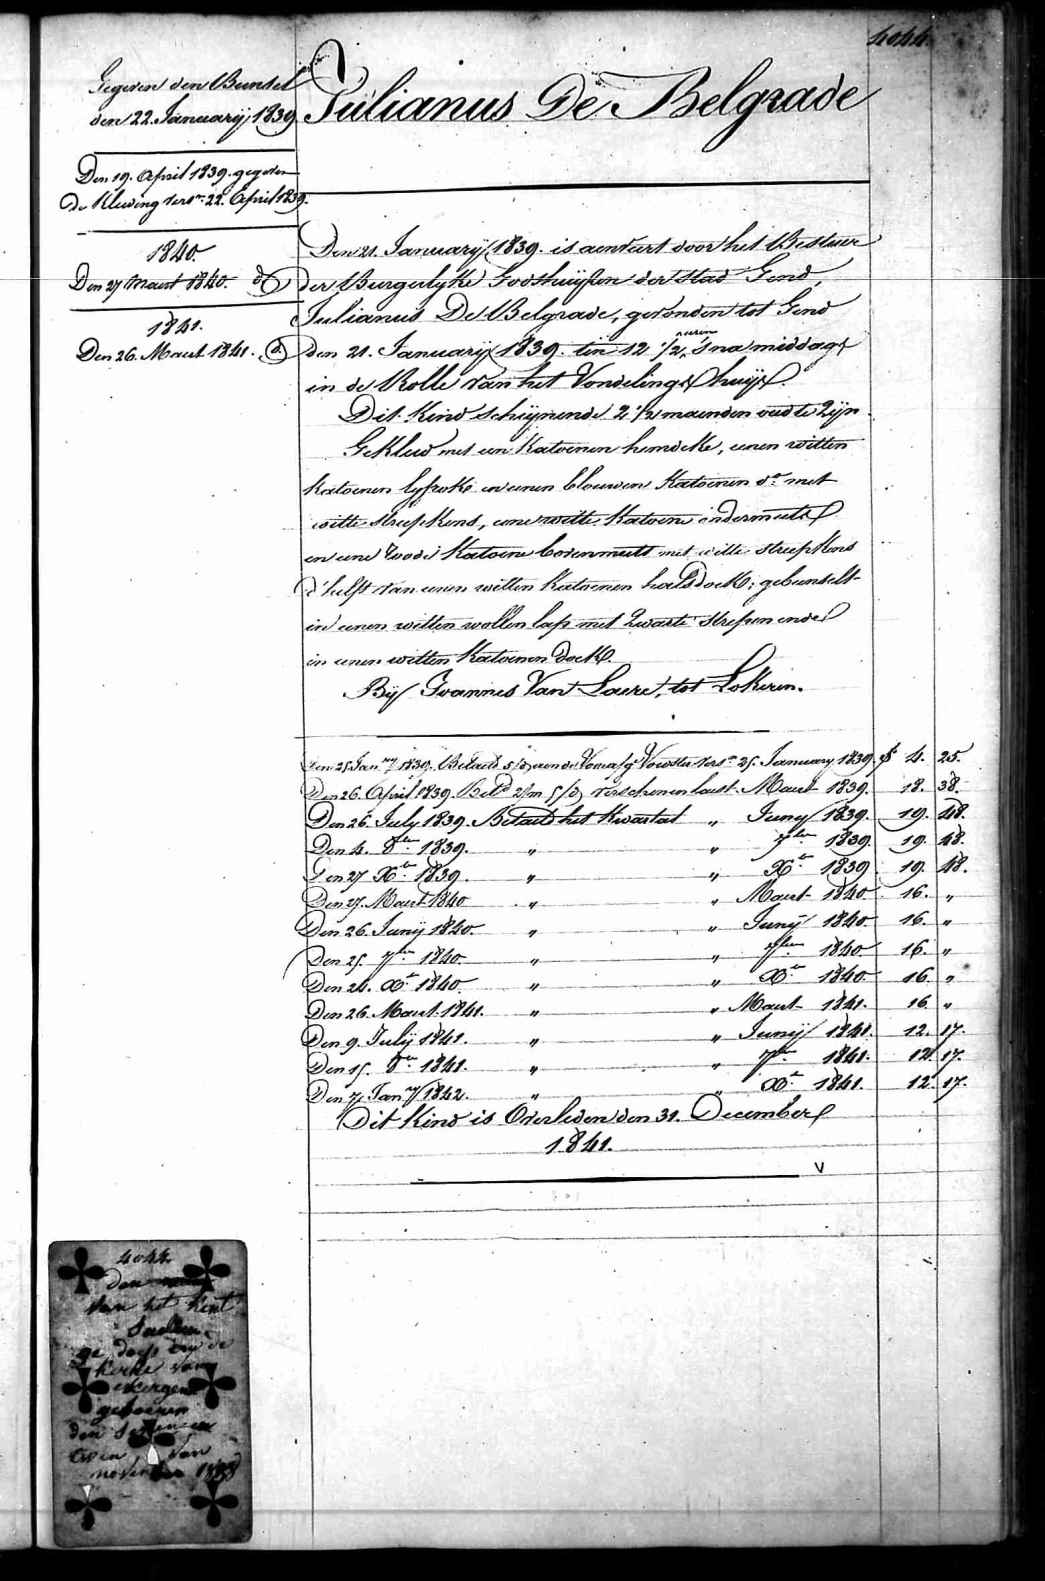 4044.
Gegeven den Bunsel
den 22. Januarij 1839
Den 19. April 1839. gegeven
de Kleeding vers.^m 22. April 1839.
1840.
Den 27 Maert 1840. d^o
1841.
Den 26. Maert 1841. d^o
Julianus De Belgrade
Den 21. Januarij 1839. is aenveirt door het Bestuer
der Burgerlyke Godshuijsen der Stad Gend,
Julianus De Belgrade, gevonden tot Gend
den 21. Januarij 1839. ten 12 1/2, uren 's na middags
in de Rolle van het Vondelings huijs.
Dit Kind schijnende 2 1/2 maenden oud te Zijn
Gekleed met een Katoenen hemdeke, eenen witten
Katoenen lyfrok en eenen blouwen Katoenen d.^o met
witte streepkens, eene witte Katoene ondermuts
en eene roode Katoene bovenmuts met witte streepkens
d'helft van eenen witten Katoenen halsdoek; gebunselt
in eenen witten wollen lap met Zwarte strepen ende
in eenen witten Katoenen doek.
Bij Joannes Van Laere, tot Lokeren.
Den 25 Jan^ry 1839. Betaeld 5/d aen de Voedster vers.^n 25. January 1839. f 4. 25.
Den 26. April 1839. Bet^d verschenen laest Maert 1839. 18. 38.
Den 26. July 1839. Betaeld het Kwartael „ Juny 1839. 19. 48.
Den 4. 8^ber 1839. „ „ 7^ber 1839 19. 48.
Den 27 X^br 1839. „ „ X^br 1839 19. 48.
Den 27. Maert 1840 „ „ Maert 1840 16. „
Den 26. Junij 1840. „ „ Junij 1840 16. „
Den 25. 7^ber 1840. „ „ 7^ber 1840 16. „
Den 24. X^br 1840. „ „ X^br 1840 16. „
Den 26. Maert 1841. „ „ Maert 1841. 16 „
Den 9. Julij 1841. „ „ Junij 1841. 12. 17.
Den 15. 8^ber 1841. „ „ 7^ber 1841. 12. 17.
Den 7. Jan^ry 1842. „ „ X^br 1841. 12. 17.
Dit Kind is Overleden den 31. December
1841.
V
4044.
den
van het kint
ge doop in de
kerke van
geboeren
den
van
november 1838